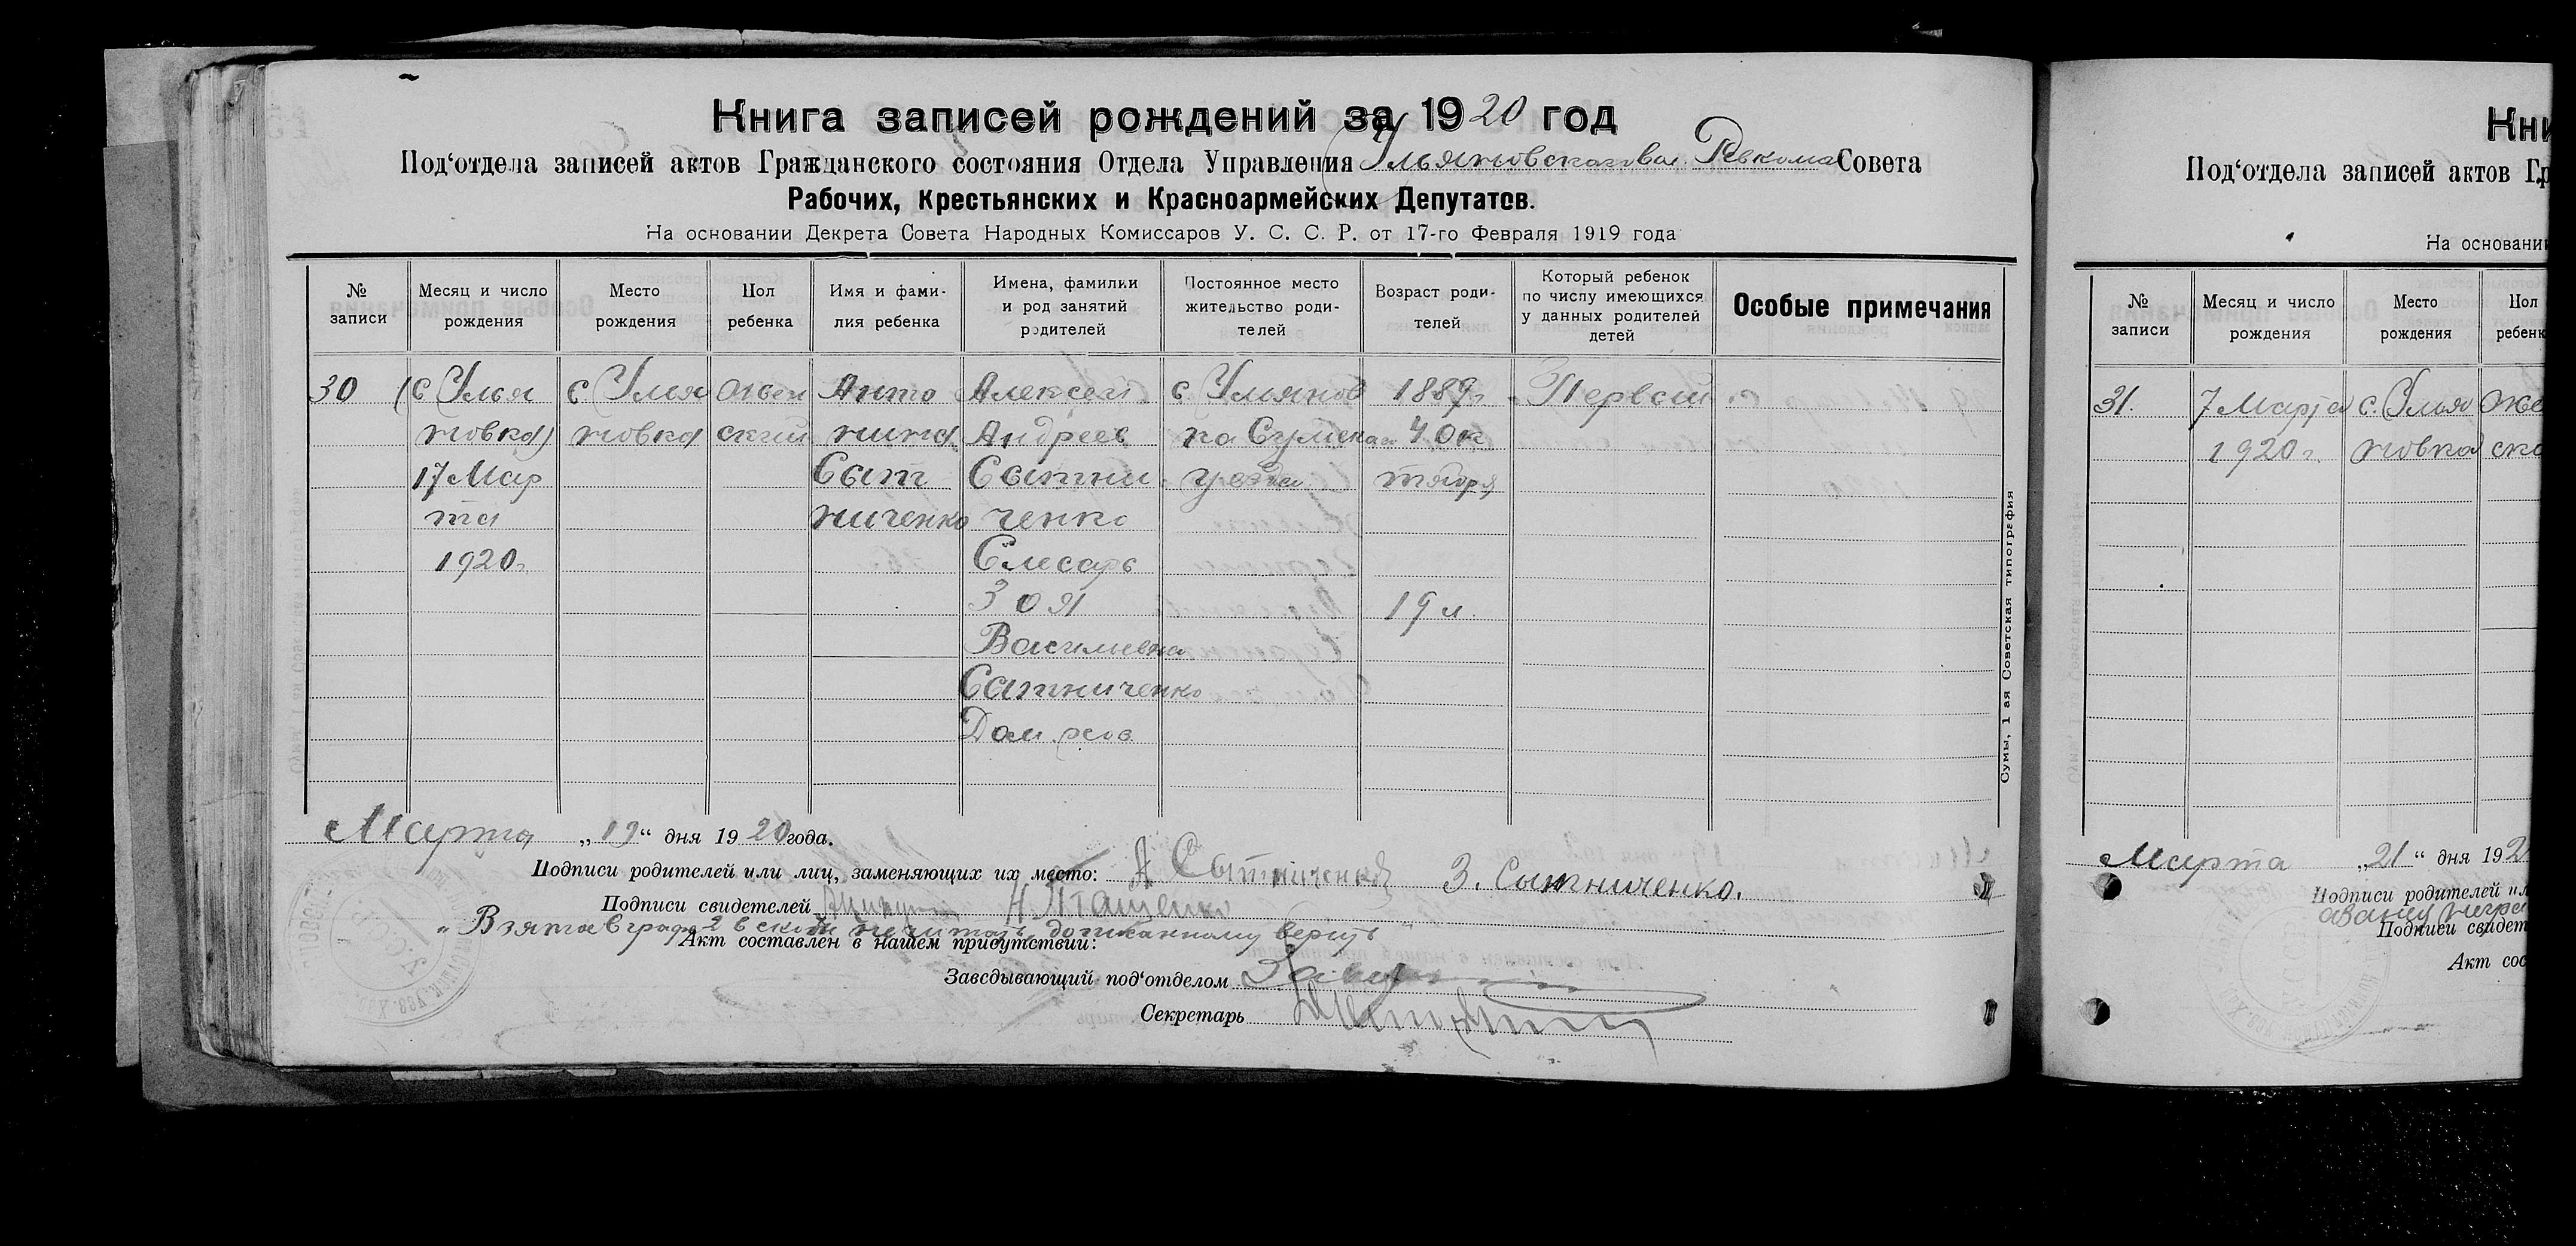 Книга записей рождений за 1920 год
Под‘отдела записей актов Гражданского состояния Отдела Управления Ульяновского вол. Ревкома Совета
Рабочих, Крестьянских и Красноармейских Депутатов.
На основании Декрета Совета Народных Комиссаров У. С. С. Р. от 17-го Февраля 1919 года
№ записи
Месяц и число рождения
Место рождения
Пол ребенка
Имя и фами-
лия ребенка
Имена, фамилии
и род занятий
родителей
Постоянное место
жительство роди-
телей
Возраст роди-
телей
Который ребенок
по числу имеющихся
у данных родителей
детей
Особые примечания
30
(с Улья
новка)
17 Мар
та
1920 г.
с Улья
новка
жен
ский
Анто
нина
Сыт
ниченко
Алексей
Андреев
Сытни
ченко
Слесарь
Зоя
Васильевна
Сытниченко
Дом. хов.
с Ульянов
ка Сумскаго
уезда
1889 г.
4 Ок
тября
19 л.
Первый
Марта „19“ дня 1920 года.
Подписи родителей или лиц, заменяющих их место: А Сытниченко З. Сытниченко.
Подписи свидетелей Н. Пташенко
„Взятое в графе 2 в скобки не читать, дописанному верить“
Акт составлен в нашем присутствии:
Заведывающий под‘отделом
Секретарь
Сумы, 1 ая Советская типография
Кни
Под‘отдела записей актов Гр
На основании
№ записи
Месяц и число рождения
Место рождения
Пол ребенк
31.
7 Марта
1920 г.
с. Улья
новка
же
ско
Марта „21“ дня 192
Подписи родителей ил
Подписи свидет
Акт сос